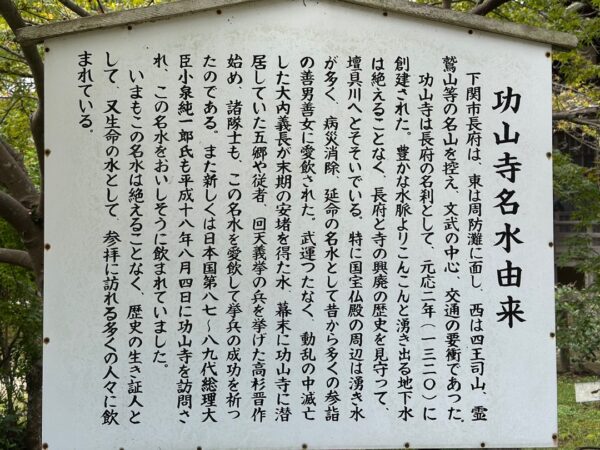 功山寺名水由来
下関市長府は、東は周防灘に面し、西は四王司山、霊
鷲山等の名山を控え、文武の中心、交通の要衝であった。
功山寺は長府の名刹として、元応二年(一三二〇)に
創建された。豊かな水脈よりこんこんと湧き出る地下水
は絶えることなく、長府と寺の興廃の歴史を見守って、
壇具川へとそそいでいる。特に国宝仏殿の周辺は湧き水
が多く、病災消除、延命の名水として昔から多くの参詣
の善男善女に愛飲された。武運つたなく、動乱の中滅亡
した大内義長が末期の安堵を得た水、幕末に功山寺に潜
居していた五郷や従者、回天義挙の兵を挙げた高杉晋作
始め、諸隊士も、この名水を愛飲して挙兵の成功を祈っ
たのである。また新しくは日本国第八七〜八九代総理大
臣小泉純一郎氏も平成十八年八月四日に功山寺を訪問さ
れ、この名水をおいしそうに飲まれていました。
いまもこの名水は絶えることなく、歴史の生き証人と
して、又生命の水として、参拝に訪れる多くの人々に飲
まれている。